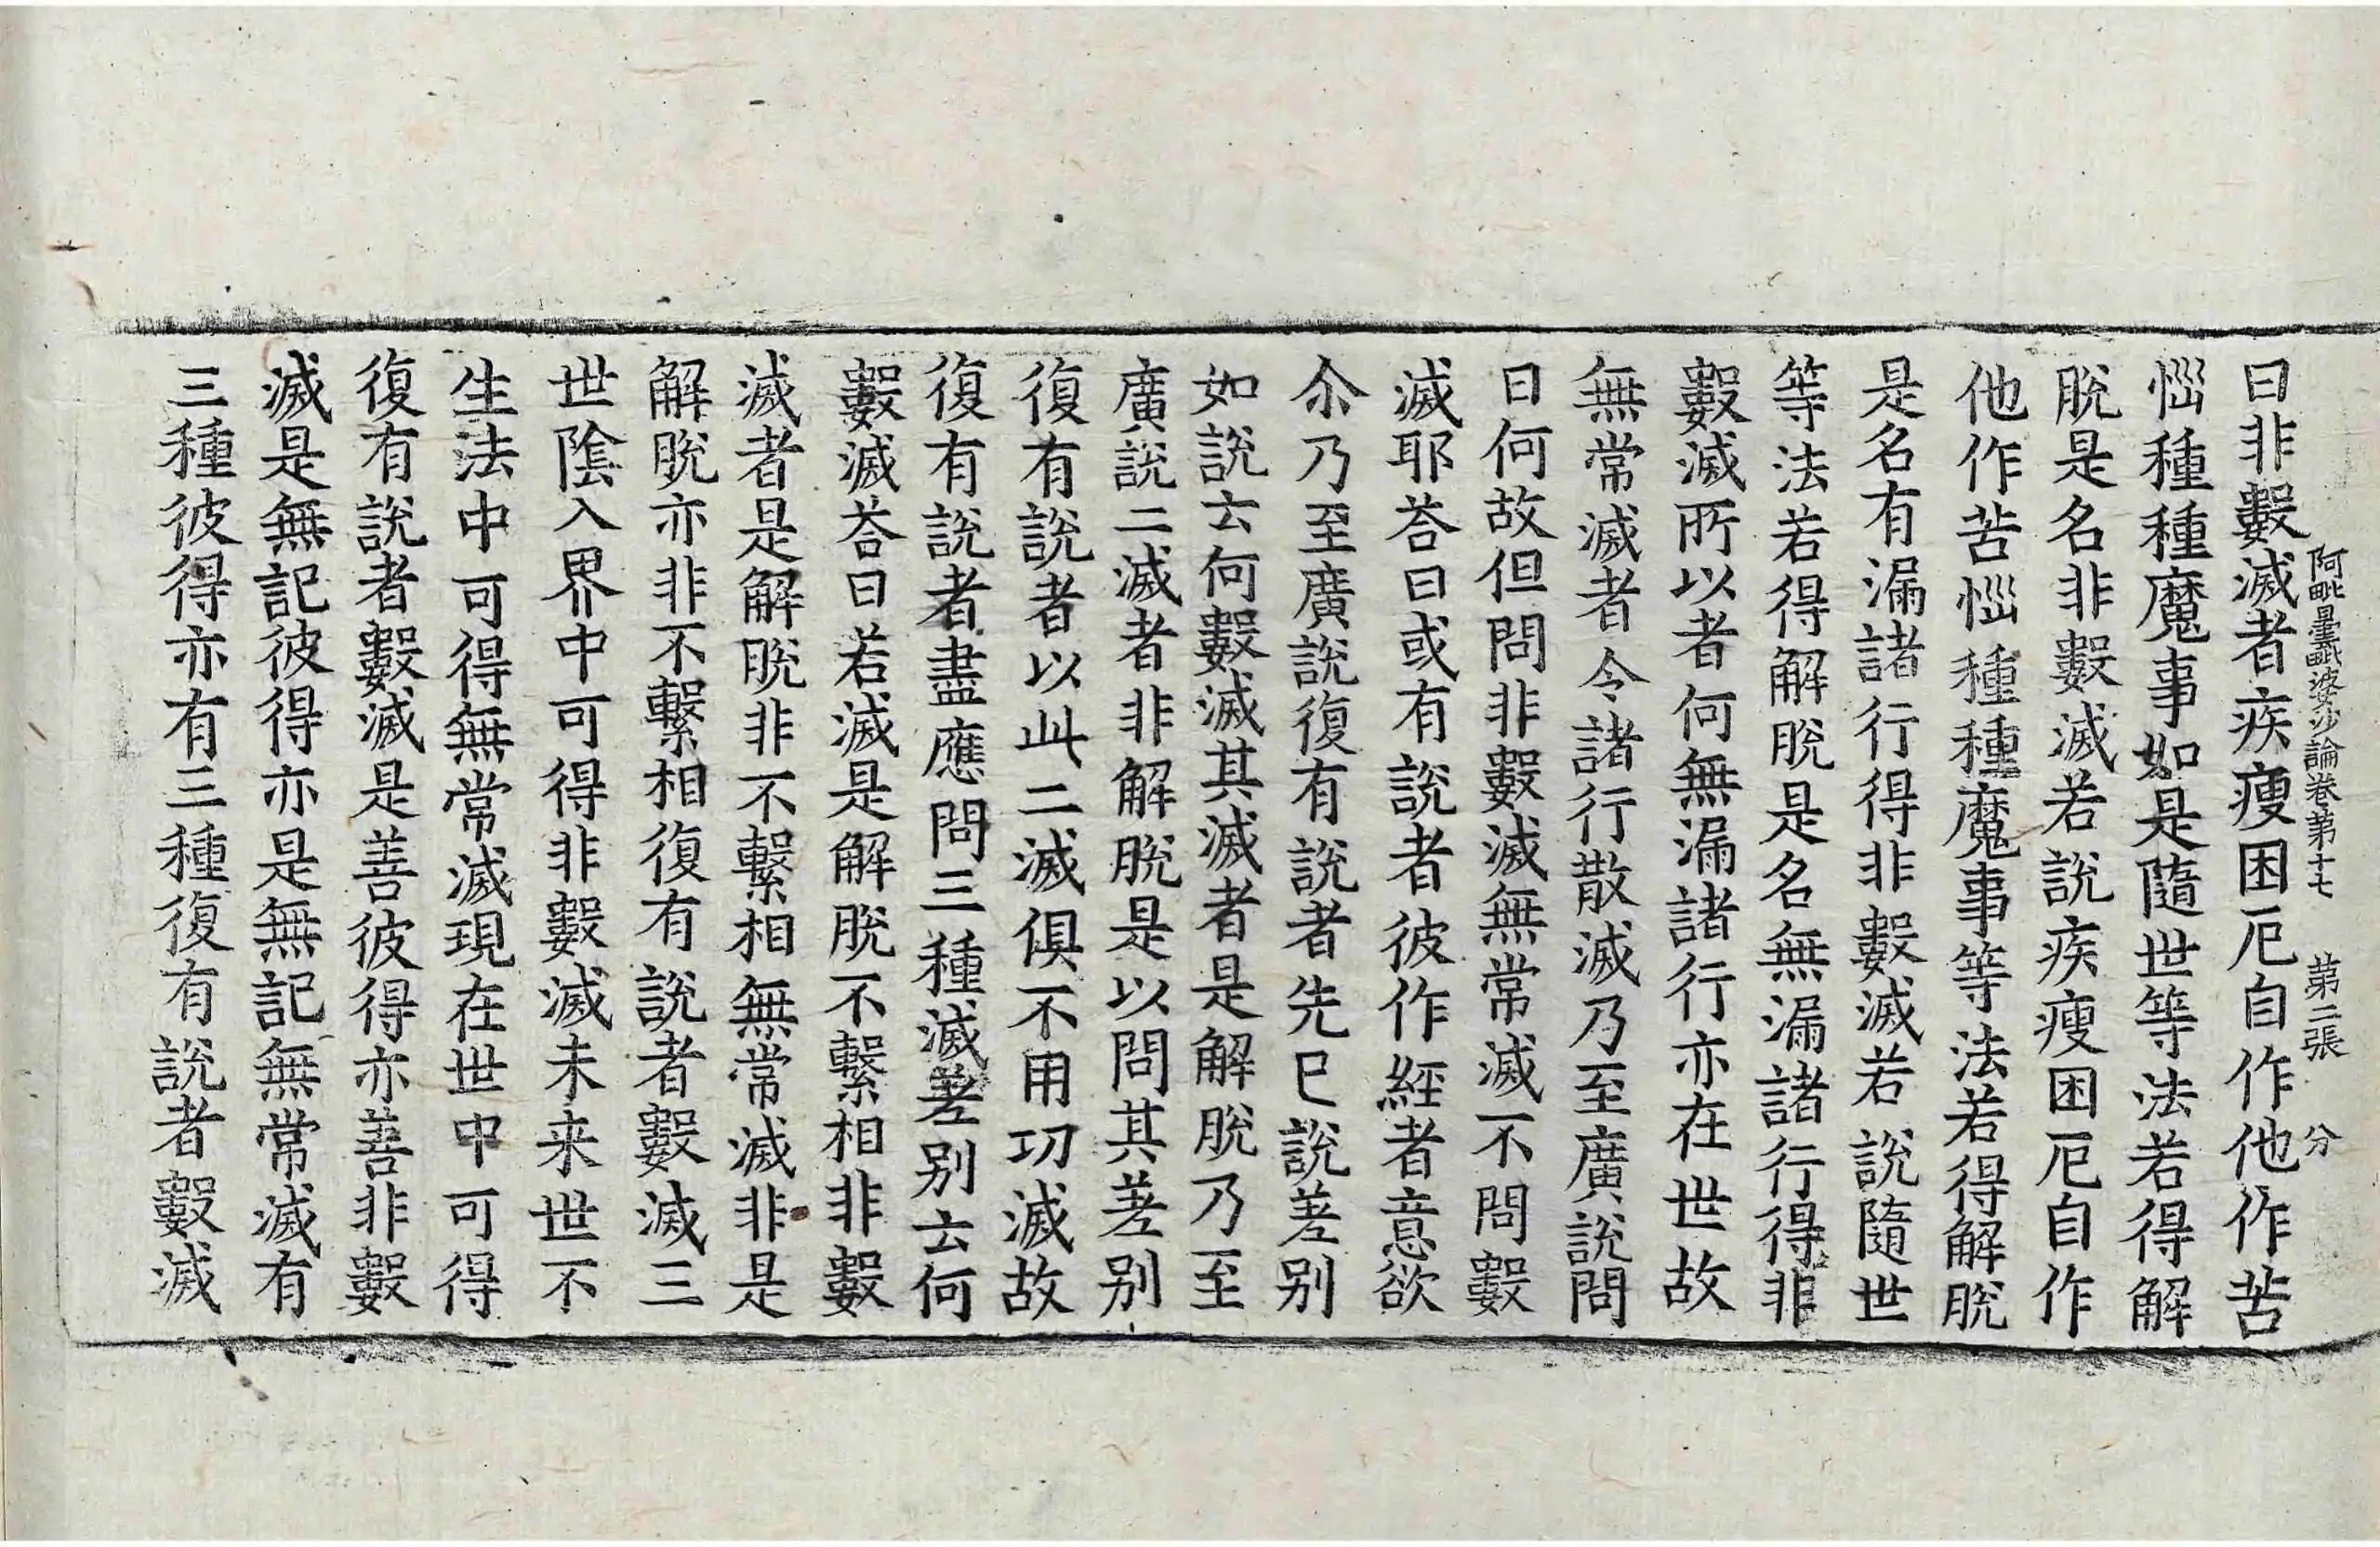 阿毗曇毗婆沙論卷第十七　第二張　分
曰非數滅者疾瘦困厄自作他作苦
惱種種魔事如是隨世等法若得解
脫是名非數滅若說疾瘦困厄自作
他作苦惱種種魔事等法若得解脫
是名有漏諸行得非數滅若說隨世
等法若得解脫是名無漏諸行得非
數滅所以者何無漏諸行亦在世故
無常滅者令諸行散滅乃至廣說問
曰何故但問非數滅無常滅不問數
滅耶荅曰或有說者彼作經者意欲
尒乃至廣說復有說者先已說差別
如說云何數滅其滅者是解脫乃至
廣說二滅者非解脫是以問其差別
復有說者以此二滅俱不用功滅故
復有說者盡應問三種滅差別云何
數滅荅曰若滅是解脫不繫相非數
滅者是解脫非不繫相無常滅非是
解脫亦非不繫相復有說者數滅三
世陰入界中可得非數滅未来世不
生法中可得無常滅現在世中可得
復有說者數滅是善彼得亦善非數
滅是無記彼得亦是無記無常滅有
三種彼得亦有三種復有說者數滅